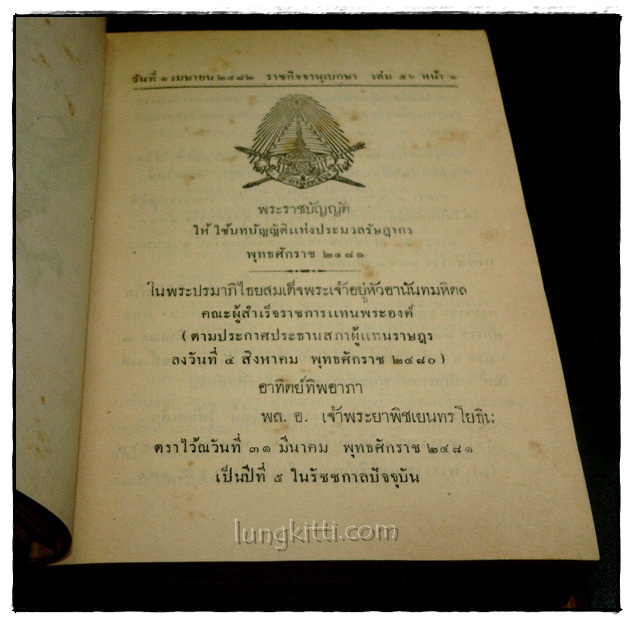 วันที่ ๑ เมษายน ๒๔๘๒ ราชกิจจานุเบกษา เล่ม ๕๖ หน้า ๑
พระราชบัญญัติ
ให้ใช้บทบัญญัติแห่งประมวลรัษฎากร
พุทธศักราช ๒๔๘๑
ในพระปรมาภิไธยสมเด็จพระเจ้าอยู่หัวอานันทมหิดล
คณะผู้สำเร็จราชการแทนพระองค์
(ตามประกาศประธานสภาผู้แทนราษฎร
ลงวันที่ ๔ สิงหาคม พุทธศักราช ๒๔๘๐)
อาทิตย์ทิพอาภา
พล. อ. เจ้าพระยาพิชเยนทรโยธิน
ตราไว้ณวันที่ ๓๑ มีนาคม พุทธศักราช ๒๔๘๑
เป็นปีที่ ๕ ในรัชชกาลปัจจุบัน
lungkitti.com